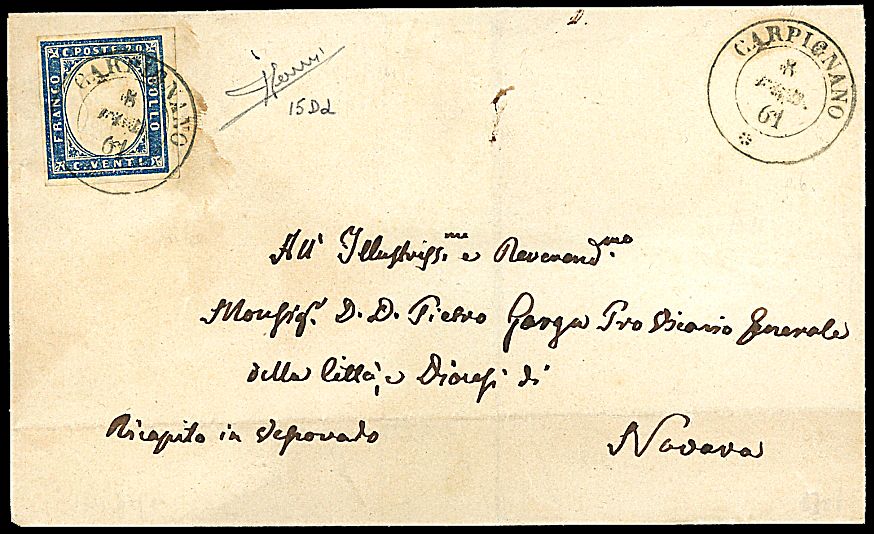 C. POSTE 20
FRANCO
BOLLO
C. VENTI
CARPIGNANO
61
15Dd
CARPIGNANO
61
All' Illustriss.mo e Reverend.mo
Monsig.r D. D. Pietro Garga Pro Vicario Generale
della Città, e Diocesi di
Ricapito in Vescovado
Novara